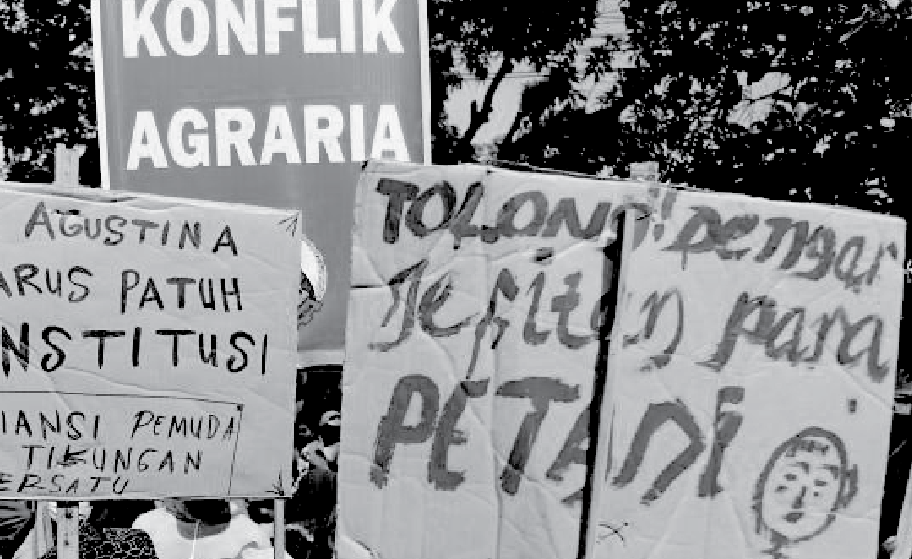 KONFLIK
AGRARIA
AGUSTINA
ARUS PATUH
NSTITUSI
IANSI PEMUDA
TIKUNGAN
ERSATU
TOLONG! DENGAR
JERITAN PARA
PETANI